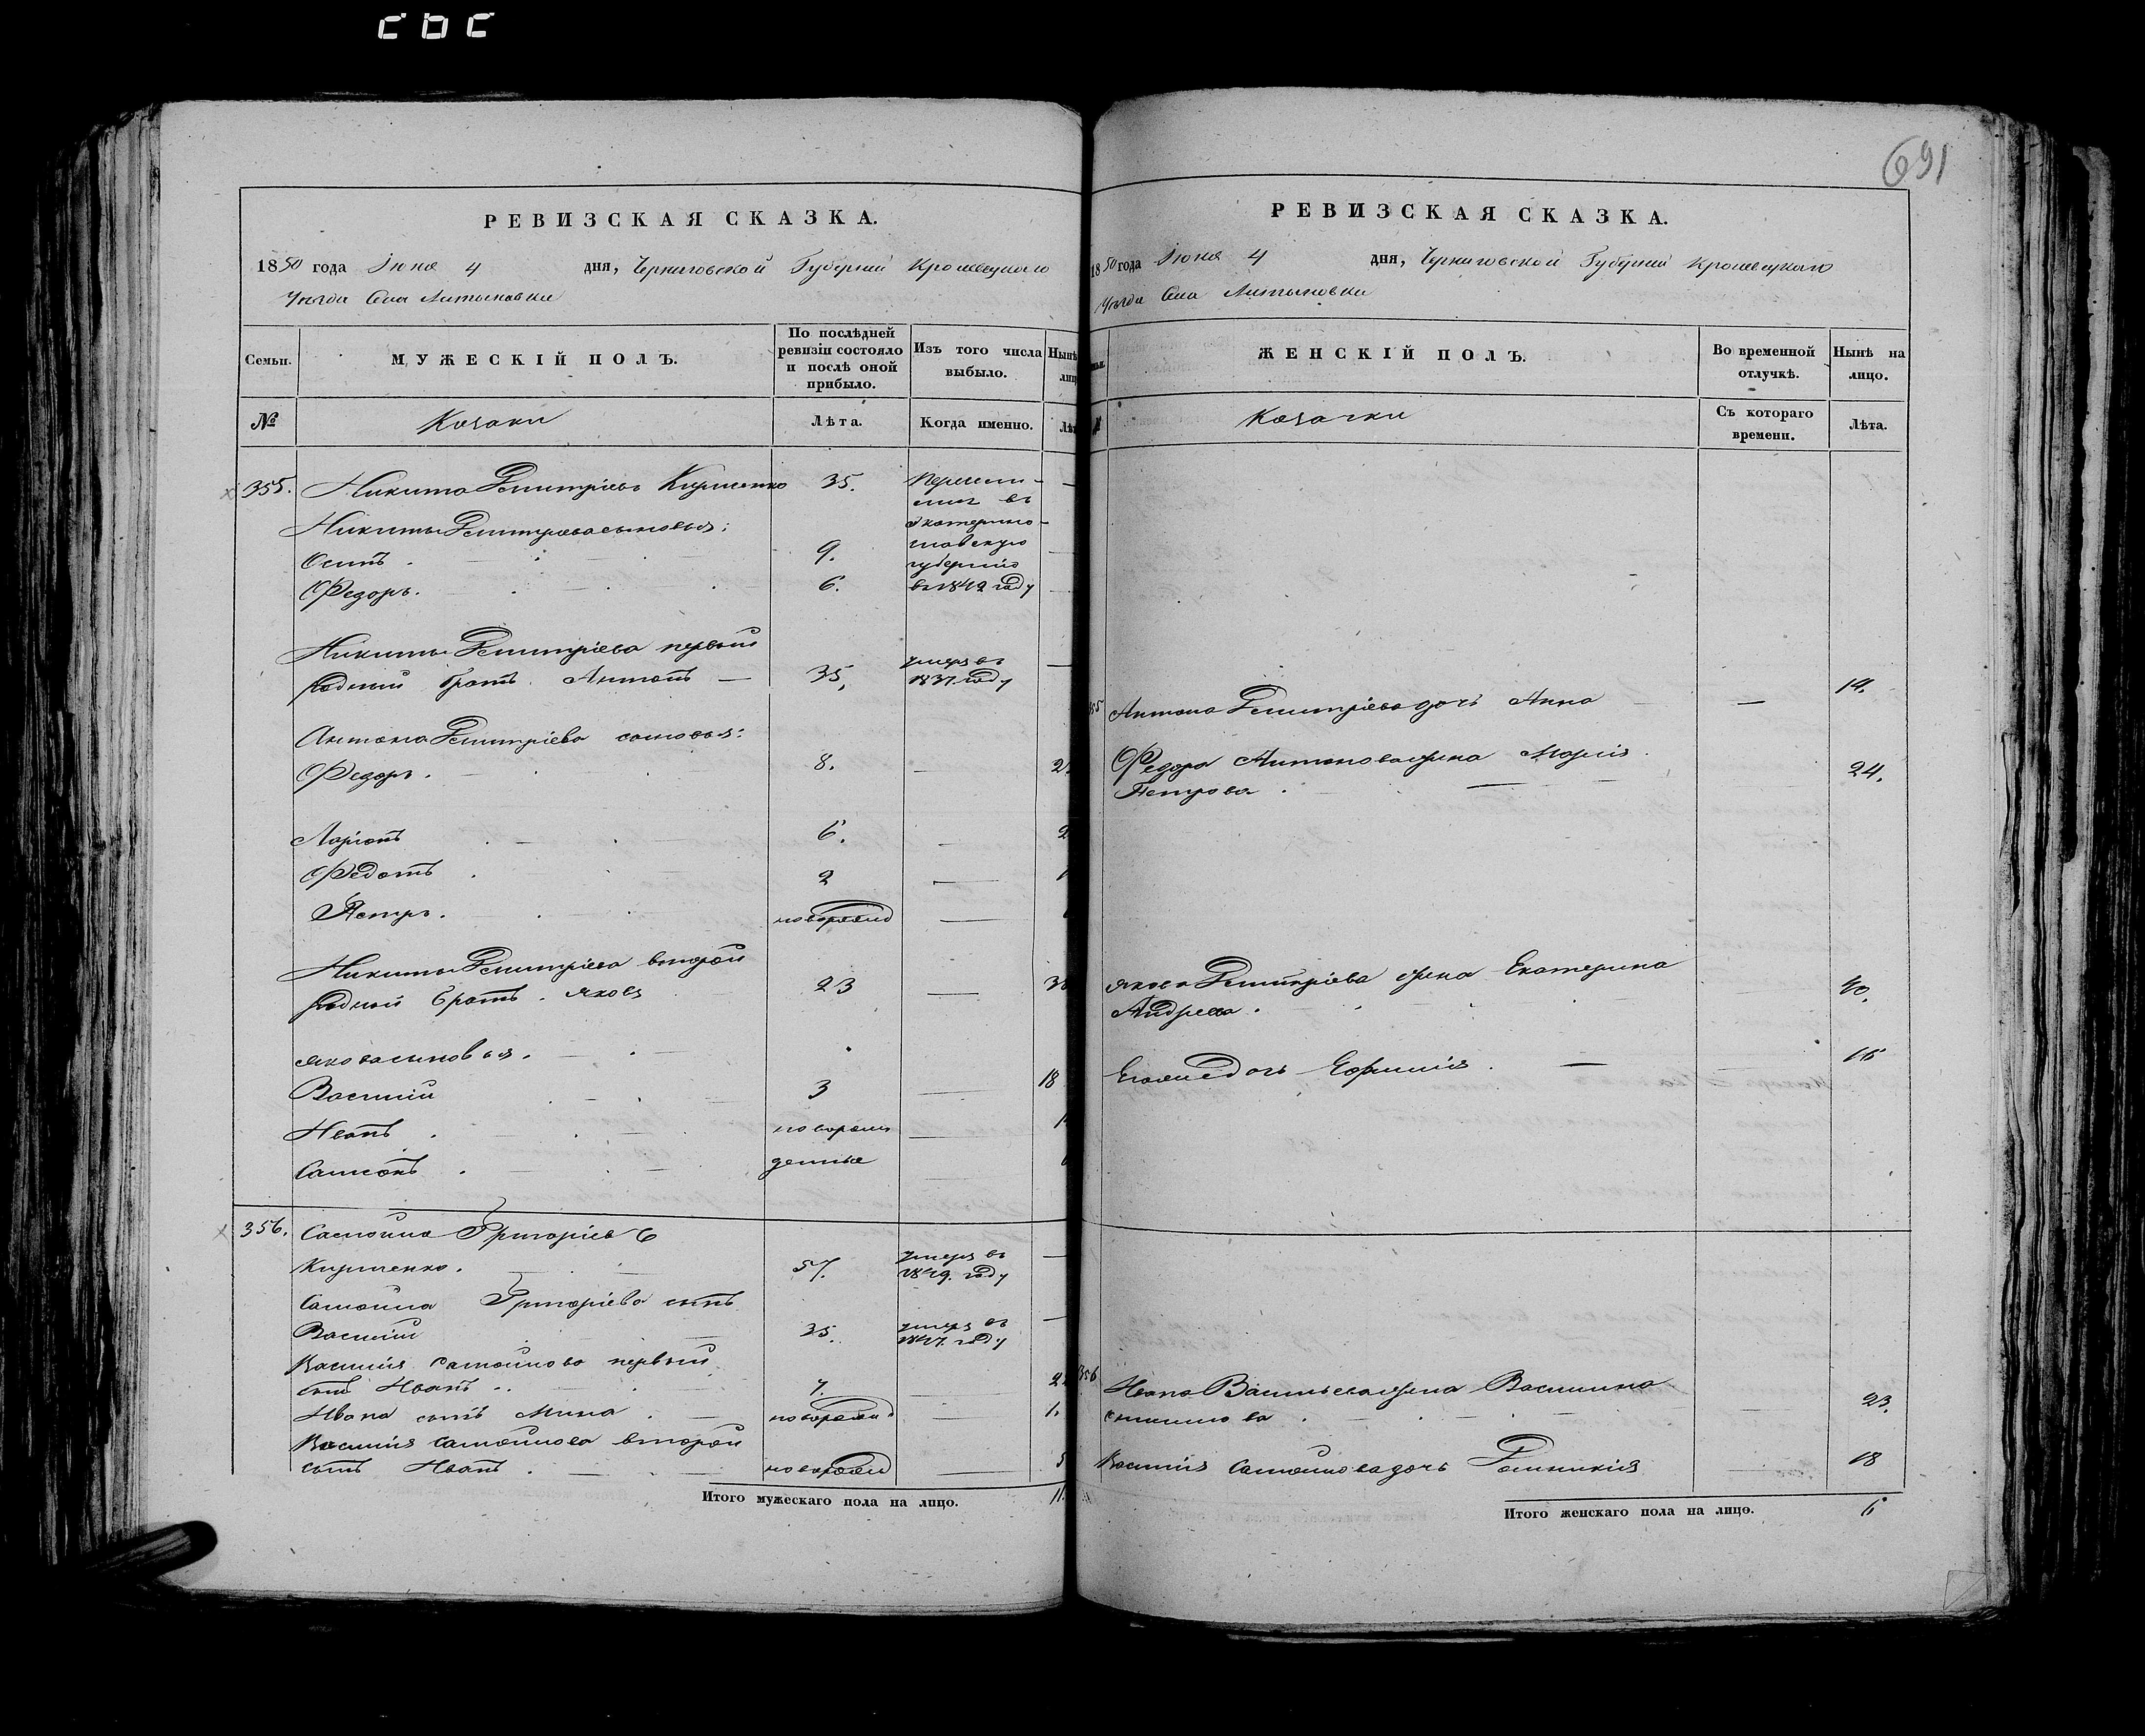 691
РЕВИЗСКАЯ СКАЗКА.
1850 года Іюня 4 дня, Черниговской Губерніи Кролевецкого
Уѣзда Села Литвиновки
Семьи. МУЖЕСКІЙ ПОЛЪ. По послѣдней ревизіи состояло и послѣ оной прибыло. Изъ того числа выбыло. Нынѣ
№ Козаки Лѣта. Когда именно.
355. Никита Дмитріевъ Кириченко 35. Пересели-
лись въ
Никиты Дмитріева сыновья: Екатерино-
Осипъ 9. славскую
губернію
Федоръ. 6. въ 1849 году
Никиты Дмитріева первый
родный братъ Антонъ — 35. умеръ въ 1837 году
Антона Дмитріева сыновья:
Федоръ. 8. —
Ларіонъ 6. —
Федотъ 2 —
Петръ. новорожд —
Никиты Дмитріева второй
родный братъ. Яковъ 23 —
Якова сыновья.
Василій 3 — 18
Иванъ новорож —
Самсонъ денные
356. Самойла Григоріевъ
Кириченко. 57. умеръ въ 1849. году —
Самойла Григоріева сынъ
Василій 35. умеръ въ 1847. году —
Василія Самойлова первый
сынъ Иванъ 7. —
Ивана сынъ Мина новорожд — 1.
Василія Самойлова второй
сынъ Иванъ новорожд — 5
Итого мужескаго пола на лицо. 11.
РЕВИЗСКАЯ СКАЗКА.
1850 года Іюня 4 дня, Черниговской Губерніи Кролевецкого
Уѣзда Села Литвиновки
ЖЕНСКІЙ ПОЛЪ. Во временной отлучкѣ. Нынѣ на лицо.
Козачки Съ котораго времени. Лѣта.
355 Антона Дмитріева дочь Анна — 14.
Федора Антонова жена Марія
Петрова — 24.
Якова Дмитріева жена Екатерина
Андреева. 40.
Его же дочь Ефимія — 16
356 Ивана Васильева жена Василина
— 23.
Василія Самойлова дочь Домникія — 18
Итого женскаго пола на лицо. 6